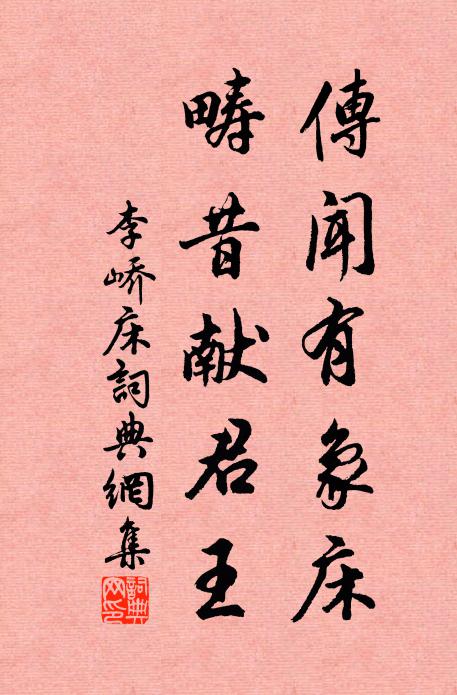 傳聞有象床
疇昔献君王
李峤床詞典網集
詞典网印